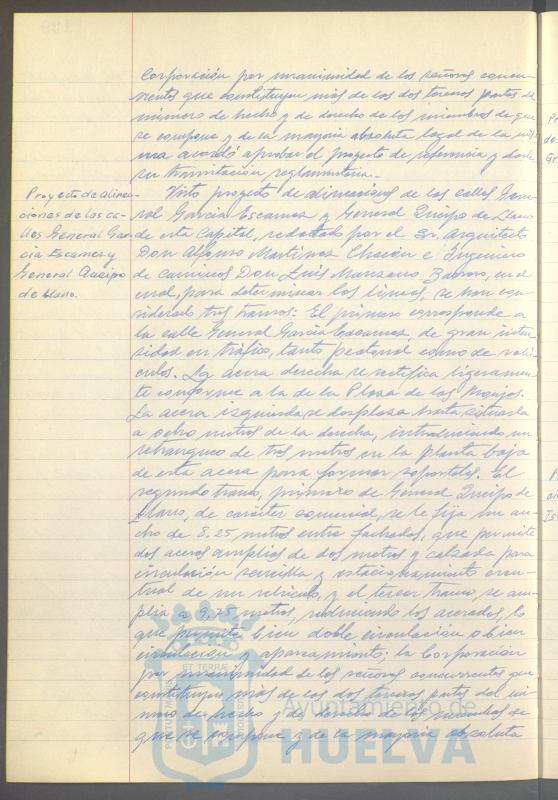 Corporación por unanimidad de los señores concu-
rrentes que constituyen más de las dos terceras partes del
número de hecho y de derecho de los miembros de que
se compone y de la mayoría absoluta legal de la mis-
ma acordó aprobar el proyecto de referencia y darle
su tramitación reglamentaria.-
Proyecto de alinea-
ciones de las ca-
lles General Gar-
cía Escamez y
General Queipo
de Llano.
Visto proyecto de alineaciones de las calles Gene-
ral García Escamez y General Queipo de Llano
de esta Capital, redactado por el Sr. Arquitecto
Don Alfonso Martínez Chacón e Ingeniero
de caminos Don Luis Manzano, en el
cual, para determinar las líneas, se han con-
siderado tres tramos: El primero corresponde a
la calle General García Escamez de gran inten-
sidad en tráfico, tanto peatonal como de vehí-
culos. La acera derecha se rectifica ligeramen-
te conforme a la de la Plaza de las Monjas.
La acera izquierda se desplaza hasta situarla
a ocho metros de la derecha, introduciendo un
retranqueo de tres metros en la planta baja
de esta acera para formar soportales. El
segundo tramo, primero de General Queipo de
Llano, de carácter comercial, se le fija un an-
cho de 8.25 metros entre fachadas, que permite
dos aceras amplias de dos metros y calzada para
circulación sencilla y estacionamiento even-
tual de un vehículo, y el tercer tramo, se am-
plía a 9,25 metros, reduciendo los acerados, lo
que permite bien doble circulación o bien
circulación y aparcamiento; la Corporación
por unanimidad de los señores concurrentes que
constituyen más de las dos terceras partes del nú-
mero de hecho y de derecho de los miembros de
que se compone y de la mayoría absoluta
ET TERRÆ
PORTUS MARIS
CUSTODIA
Ayuntamiento de
HUELVA